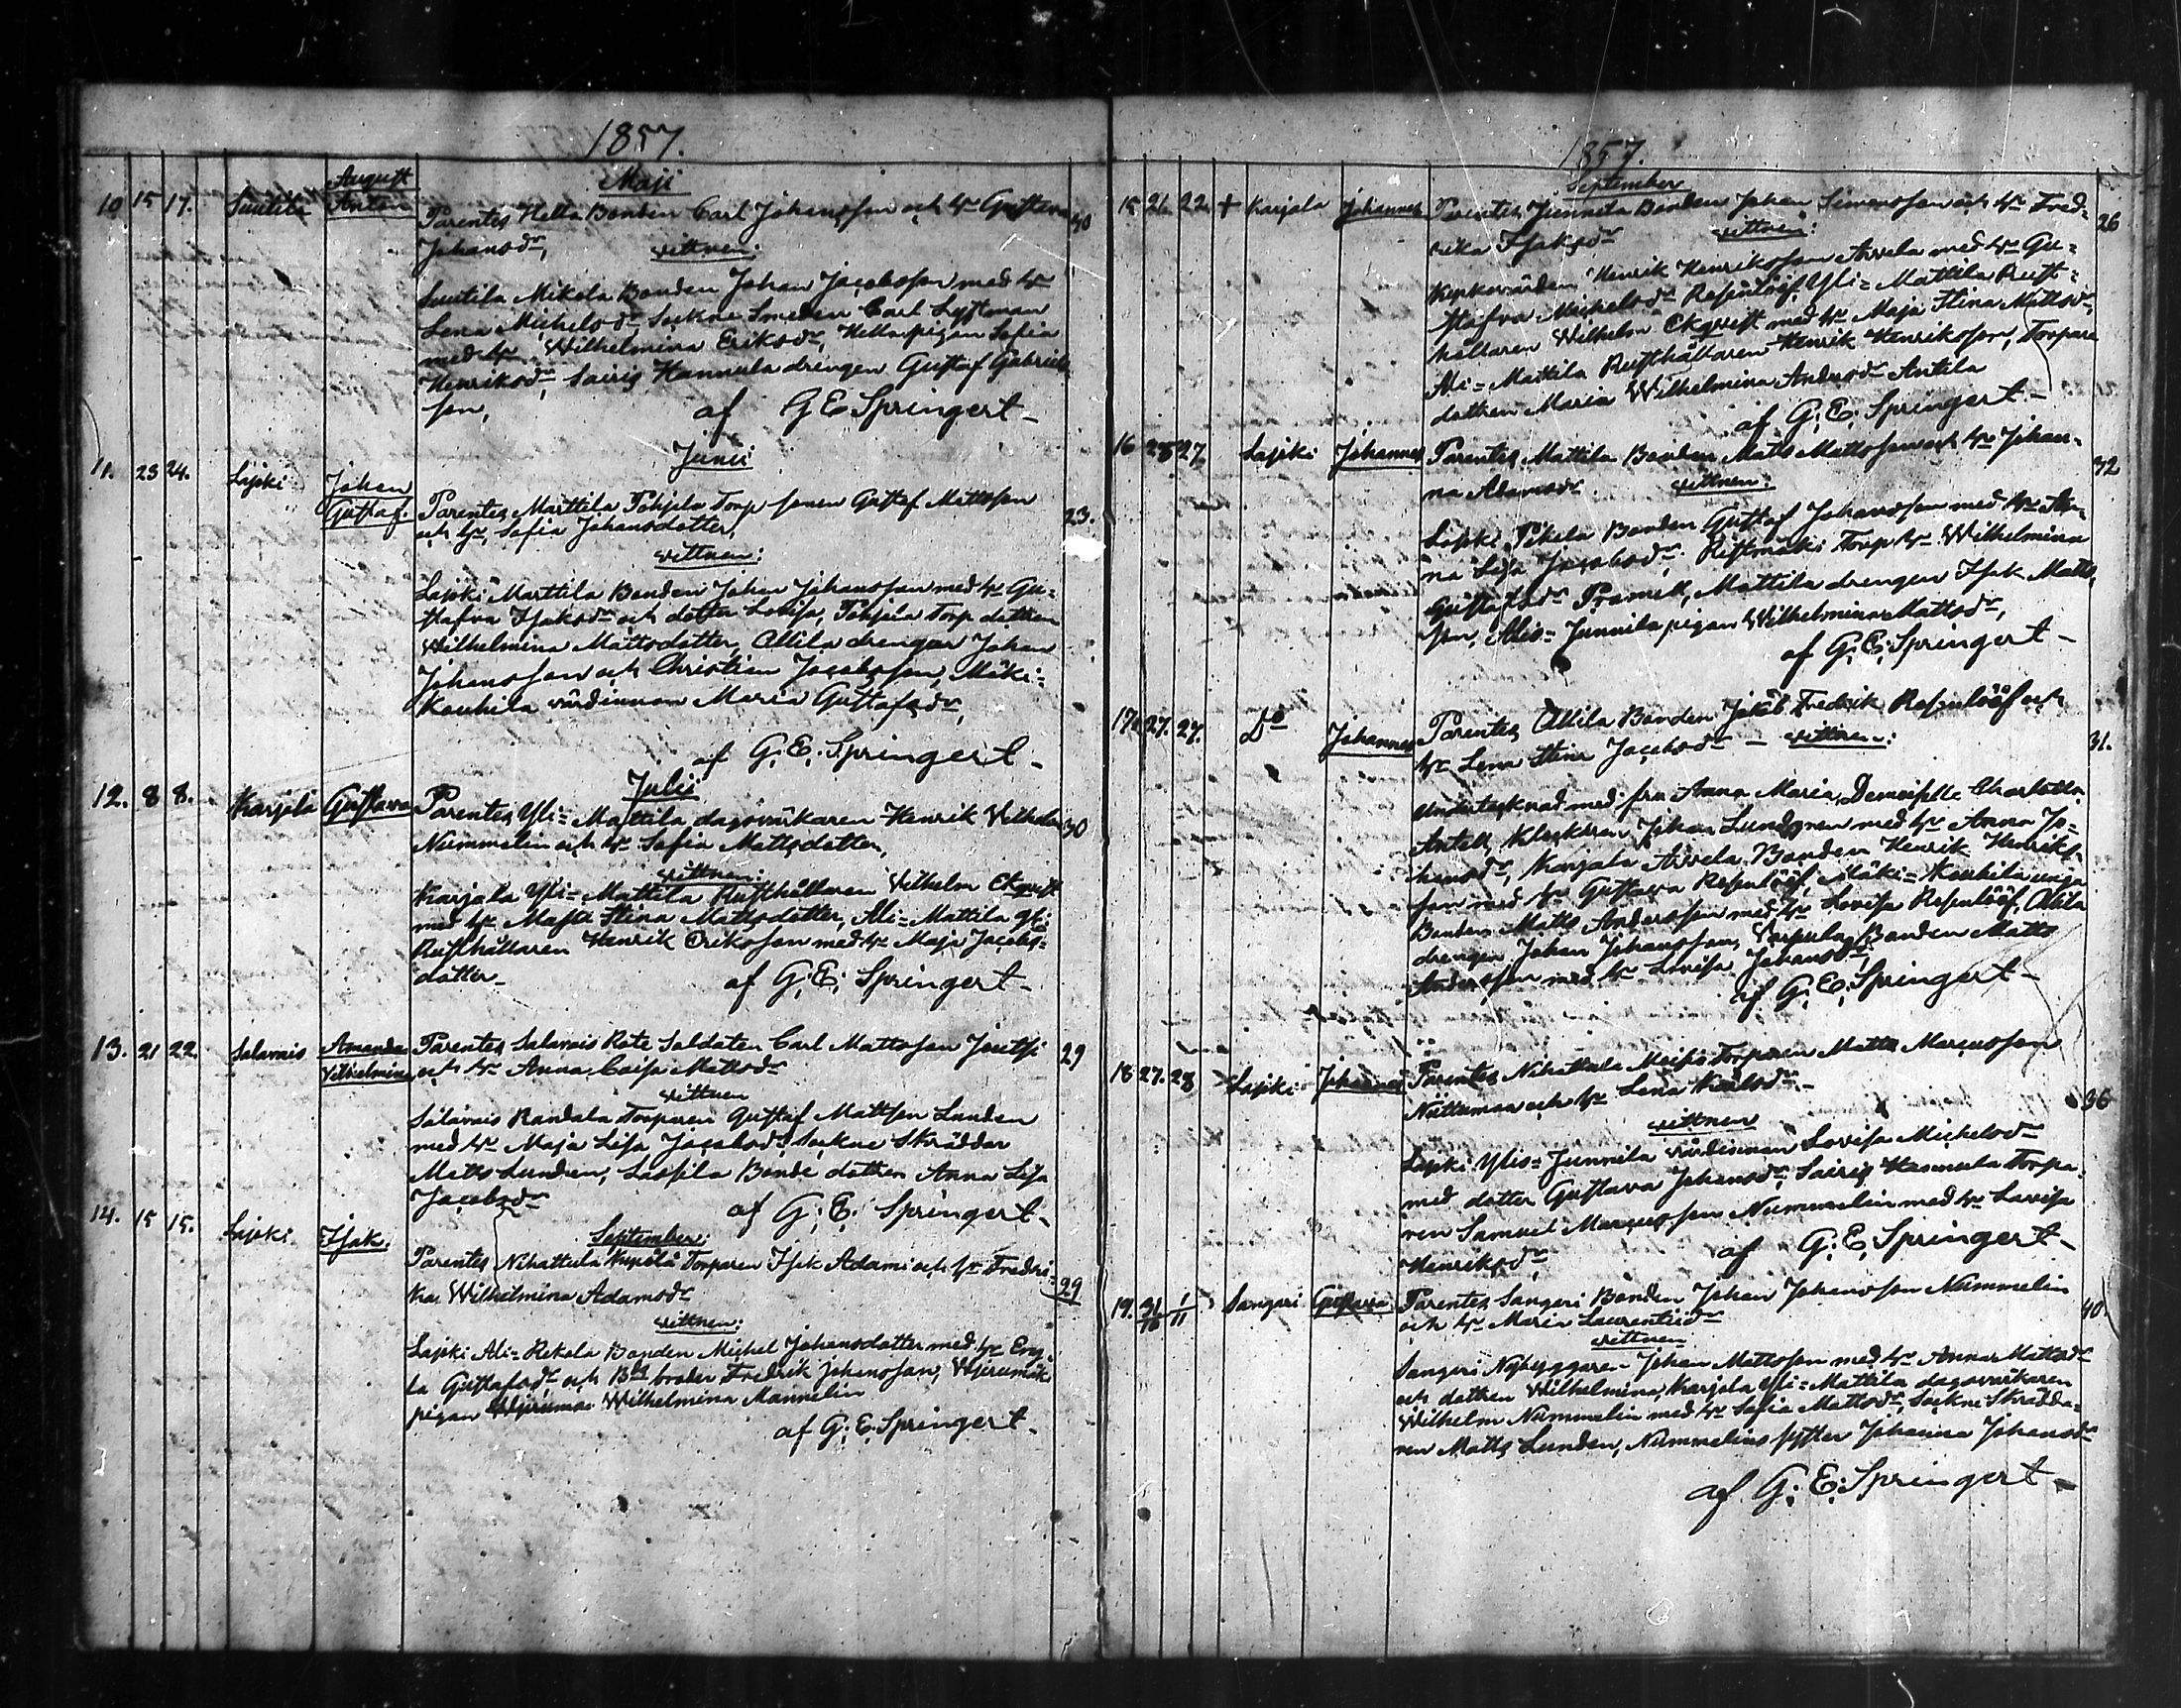 1857.
Maji
10 15 17. Suutila August Anton Parentes Hella Bonden Carl Johansson och h:u Gustava 40
Johansd:r, vittnen:
Suutila Mikola Bonden Johan Jacobsson med h:u
Lena Michelsd:r Sockne Smeden Carl Lystman
med h:u Wilhelmina Eriksd:r, Hella pigan Sofia
Henriksd:r, Sairis Hannula drengen Gustaf Gabriels
son, af G E Springert
Junii
11. 23 24. Lajski Johan Gustaf. Parentes Marttila Pohjola Torp sonen Gustaf Mattsson 23.
och h:u Sofia Johansdotter,
vittnen:
Lajski Marttila Bonden Johan Johansson med h:u Gu=
stafva Isaksd:r och dotter Lovisa, Pohjola Torp dottren
Wilhelmina Mattsdotter, Ollila drengar Johan
Johansson och Christian Jacobsson, Mäki=
Kouhila värdinnan Maria Gustafsd:r,
af G. E. Springert
Julii
12. 8 8. Karjala Gustava Parentes Yli=Mattila dagsverkaren Henrik Vilhelm 30
Nummelin och h:u Sofia Mattsdotter,
vittnen:
Karjala Yli=Mattila Rusthållaren Vilhelm Ekqvist
med h:u Maja Stina Mattsdotter, Ali=Mattila
Rusthållaren Henrik Eriksson med h:u Maja Jacobs=
dotter af G. E. Springert
13. 21 22. Salavais Amanda Vilhelmina Parentes Salavais Rote Soldaten Carl Mattsson Joutsi 29
och h:u Anna Caisa Mattsd:r
vittnen
Salavais Randala Torparen Gustaf Mattsson Lunden
med h:u Maja Lisa Jacobsd:r, Sockne Skräddar
Matts Lunden, Lassila Bonde dottren Anna Lisa
Jacobsd:r af G. E. Springert
September:
14. 15 15. Lajski Isak. Parentes Nihattula Torparen Isak Adami och h:u Fredri= 29
ka Wilhelmina Adamsd:r
vittnen:
Lajski Ali=Rekola Bonden Michel Johansdotter med h:u Eve
la Gustafsd:r och B:d broder Fredrik Johansson,
pigan Wilhelmina Mannelin
af G. E. Springert
1857.
September
15 21. 22. + Karjala Johannes Parentes Junnila Bonden Johan Simonsson och h:u Fred= 26
rika Isaksd:r vittnen:
Kyrkovärden Henrik Henriksson Arvela med h:u Gu=
stafva Michelsd:r Rosenlööf, Yli=Mattila Rust=
hållaren Wilhelm Ekqvist med h:u Maja Stina Mattsd:r,
Ali=Mattila Rusthållaren Henrik Henriksson, Torpare
dottren Maria Wilhelmina Andersd:r Antila
af G. E. Springert
16 25 27. Lajski Johannes Parentes Mattila Bonden Matts Mattsson och h:u Johan= 32
na Adamsd:r vittnen:
Lajski Pikela Bonden Gustaf Johansson med h:u An=
na Lisa Jacobsd:r, Ristmäki Torp h:u Wilhelmina
Gustafsd:r Mattila drengen Isak Matts
son, Alis=Junnila pigan Wilhelmina Mattsd:r,
af G. E. Springert
17. 27. 27. D:o Johannes Parentes Ollila Bonden Jakob Fredrik Rosenlööf och 31.
h:u Lena Stina Jacobsd:r vittnen:
undertecknad med fru Anna Maria, Demoiselle Charlotta
Antell, Klockaren Johan Lundgren med h:u Anna Jo=
hansd:r, Karjala Arvela Bonden Henrik Henriks
son med h:u Gustava Rosenlööf, Mäki=Kouhila unga
Bonden Matts Andersson med h:u Lovisa Rosenlööf, Ollila
drengen Johan Johansson, Bonden Matts
Andersson med h:u Lovisa Johansd:r,
af G. E. Springert
18 27. 28 Lajski Johannes Parentes Nihattula Torparen Matts Marcusson 36
och h:u Lena Karlsd:r
vittnen
Lajski Ylis=Junnila värdinnan Lovisa Michelsd:r
med dotter Gustava Johansd:r, Sairis Hannula Torpa
ren Samuel Marcusson Nummelin med h:u Lovisa
Henriksd:r af G. E. Springert
19. 31/10 1/11 Sangari Gustava Parentes Sangari Bonden Johan Johansson Nummelin 40
och h:u Maria Laurentiid:r
vittnen
Sangari Nybyggaren Johan Mattsson med h:u Anna Mattsd:r
och dottren Wilhelmina, Karjala Yli=Mattila dagsverkaren
Wilhelm Nummelin med h:u Sofia Mattsd:r, Sockne Skrädda=
ren Matts Lunden, Nummelins syster Johanna Johansd:r
af G. E. Springert